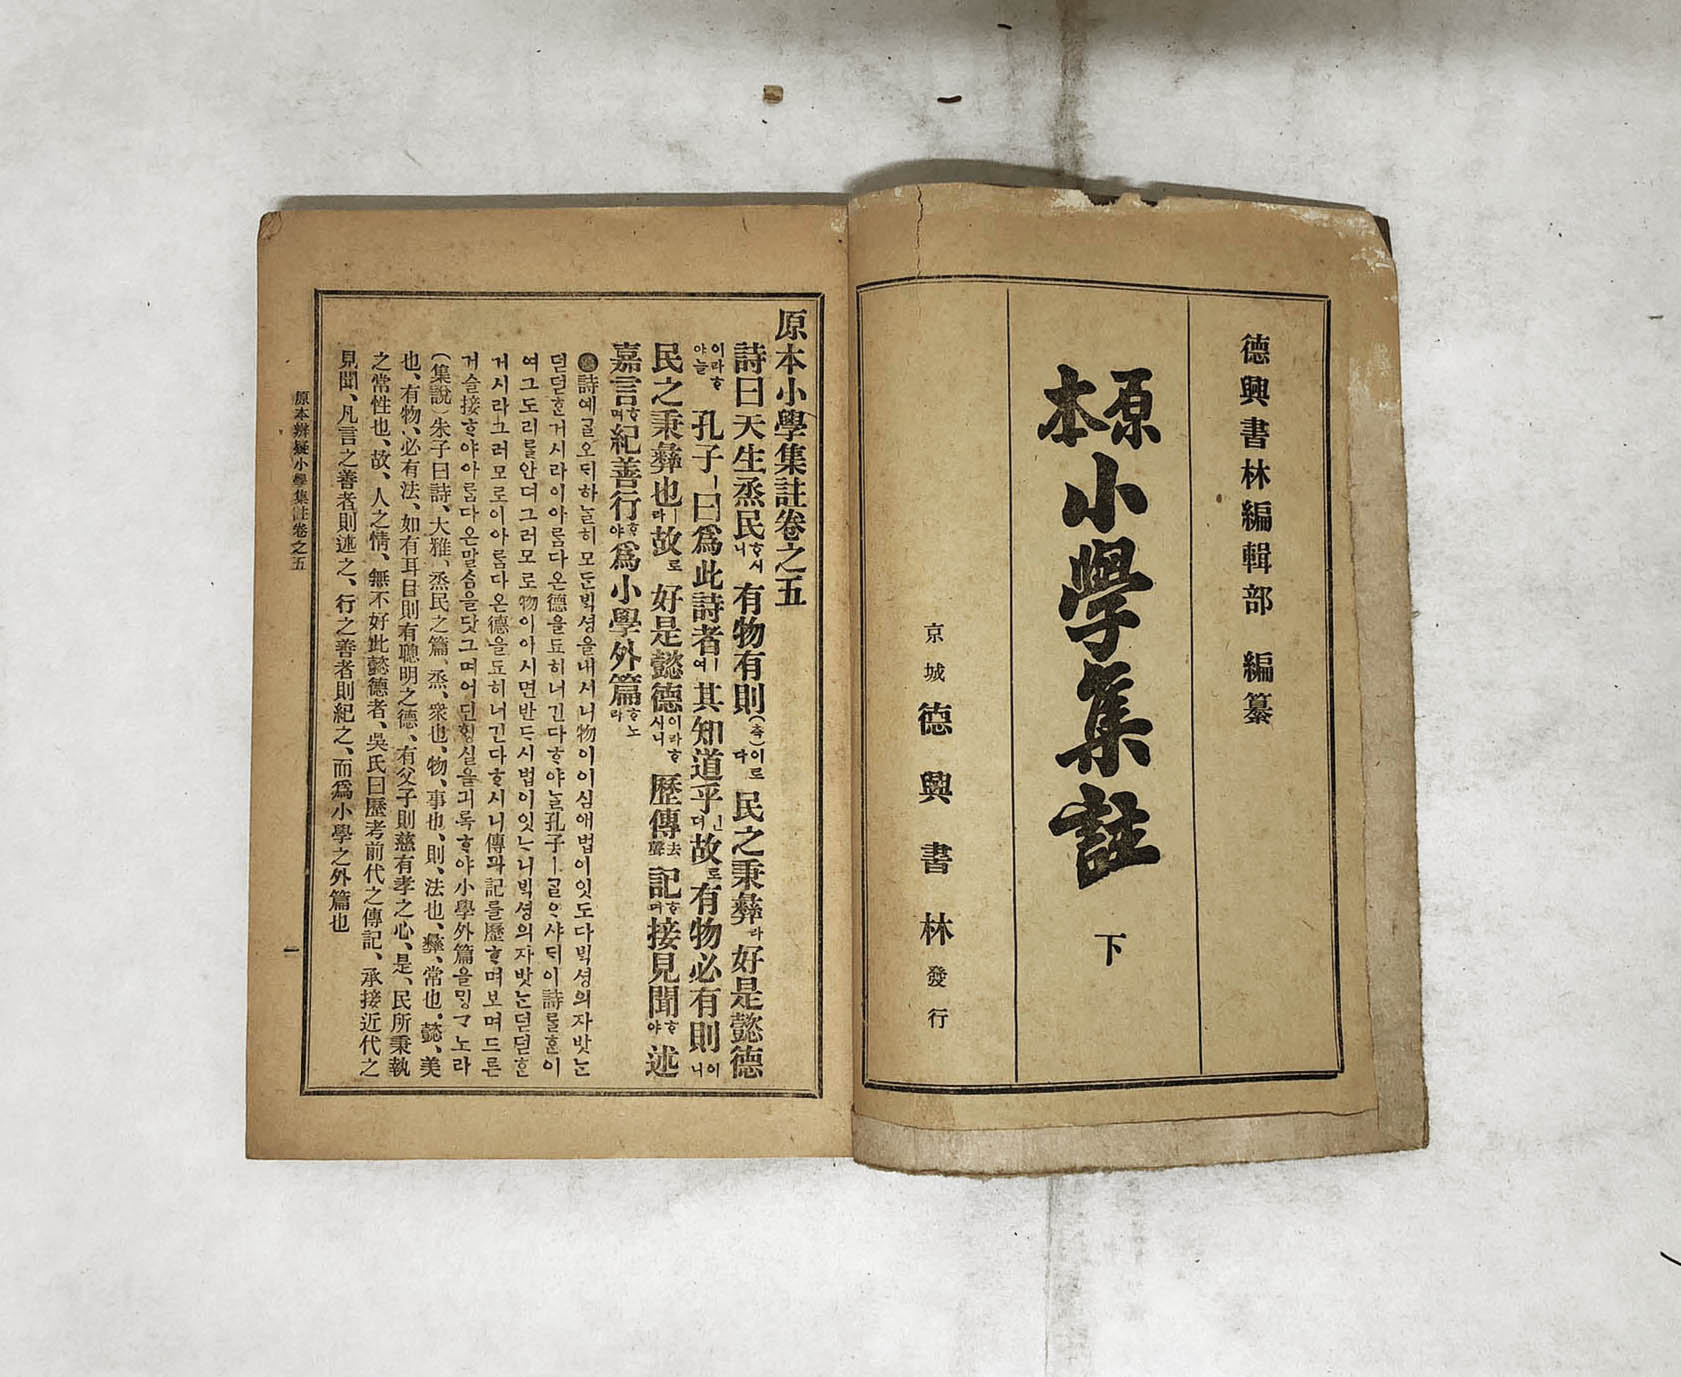 德興書林編輯部 編纂
原本
小學集註 下
京城 德興書林 發行
原本小學集註卷之五
詩曰天生烝民ᄒᆞ시니 有物有則(측)이로다 民之秉彝라 好是懿德
이라ᄒᆞ야늘 孔子ㅣ曰爲此詩者ㅣ여 其知道乎인뎌 故로有物必有則이니
民之秉彝也ㅣ라 故로 好是懿德이라ᄒᆞ시니 歷傳去聲記ᄒᆞ며接見聞ᄒᆞ야 述
嘉言ᄒᆞ며紀善行ᄒᆞ야爲小學外篇ᄒᆞ노라
詩예ᄀᆞᆯ오ᄃᆡ하ᄂᆞᆯ히모ᄃᆞᆫᄇᆡᆨ셩을내시니物이이심애법이잇도다ᄇᆡᆨ셩의자밧ᄂᆞᆫ
덛덛ᄒᆞᆫ거시라이아름다온德을됴히너긴다ᄒᆞ야ᄂᆞᆯ孔子ㅣᄀᆞᆯᄋᆞ샤ᄃᆡ이詩ᄅᆞᆯᄒᆞᆫ이
여그도리를안뎌그러모로物이이시면반ᄃᆞ시법이잇ᄂᆞ니ᄇᆡᆨ셩의자밧ᄂᆞᆫ덛덛ᄒᆞᆫ
거시라그러모로이아름다온德을됴히너긴다ᄒᆞ시니傳과記를歷ᄒᆞ며보며드른
거슬接ᄒᆞ야아름다온말ᄉᆞᆷ을닷그며어딘ᄒᆡᆼ실을긔록ᄒᆞ야小學外篇을ᄆᆡᆼᄀᆞ노라
(集說)朱子曰詩、大雅、烝民之篇、烝、衆也、物、事也、則、法也、彝、常也、懿、美
也、有物、必有法、如有耳目則有聰明之德、有父子則慈有孝之心、是、民所秉執
之常性也、故、人之情、無不好此懿德者、吳氏曰歷考前代之傳記、承接近代之
見聞、凡言之善者則述之、行之善者則紀之、而爲小學之外篇也
原本辨疑小學集註卷之五
一